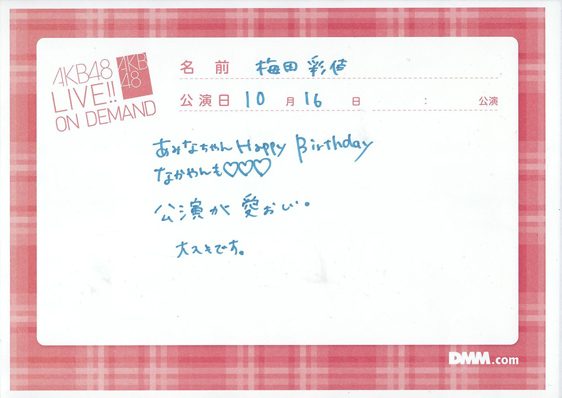 AKB48
LIVE!!
ON DEMAND
AKB
48
名 前 梅田 彩佳
公演日 10 月 16 日 : 公演
あみなちゃん Happy Birthday
なかやんも♡♡♡
公演が 愛おしい。
大スキです。
DMM.com